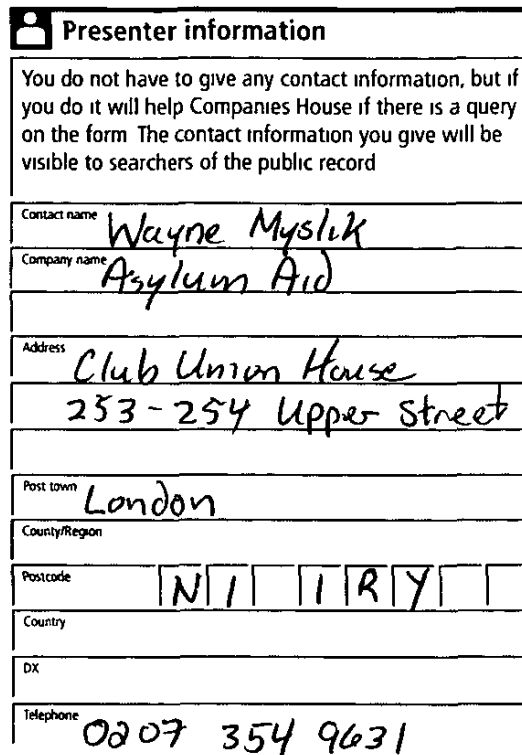 Presenter information
You do not have to give any contact information, but if
you do it will help Companies House if there is a query
on the form The contact information you give will be
visible to searchers of the public record
Contact name Wayne Myslik
Company name Asylum Aid
Address Club Union House
253-254 Upper Street
Post town London
County/Region
Postcode N1 1RY
Country
DX
Telephone 0207 354 9631